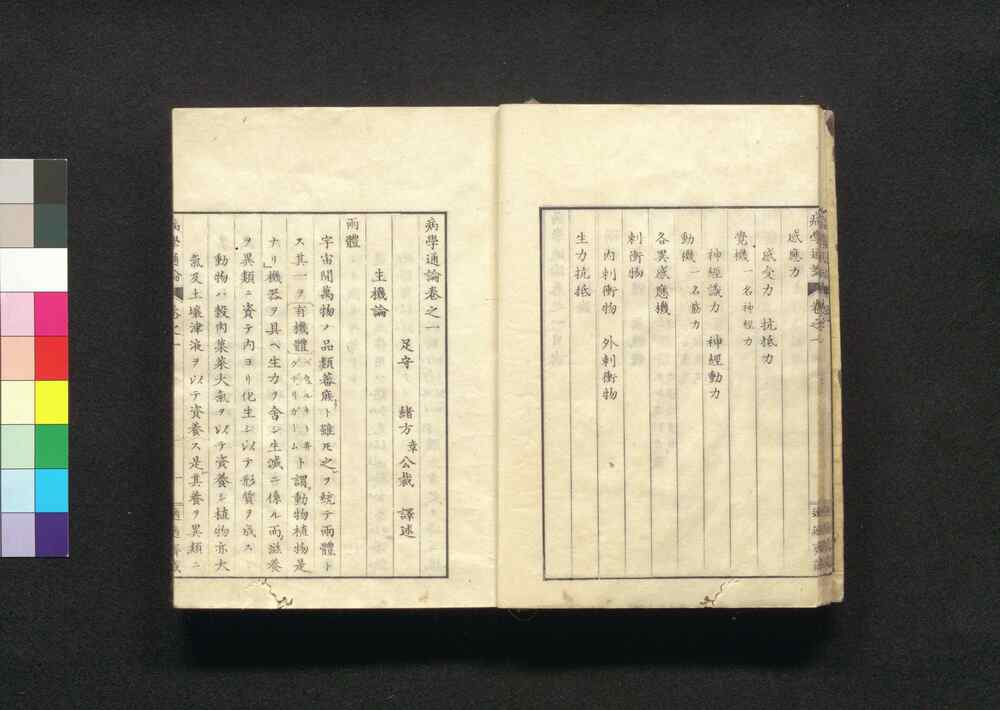 感應力
感受力 抗抵力
覺機 一名神経力
神經識力 神經動力
動機 一名筋力
各異感應機
刺衝物
内刺衝物 外刺衝物
生力抗抵
病學通論卷之一
足守 緒方章公裁 譯述
生機論
兩體
宇宙間萬物ノ品類蕃庶ト雖モ之ヲ統テ兩體ト
ス其一ヲ有機體ト謂動物植物是
ナリ機器ヲ具ヘ生力ヲ舍シ生滅ニ係ル而滋養
ヲ異類ニ資テ内ヨリ化生シ以テ形質ヲ成ス
動物ハ穀肉菓菜大氣ヲ以テ資養シ植物亦大
氣及土壤津液ヲ以テ資養ス是其養ヲ異類ニ
病學通論